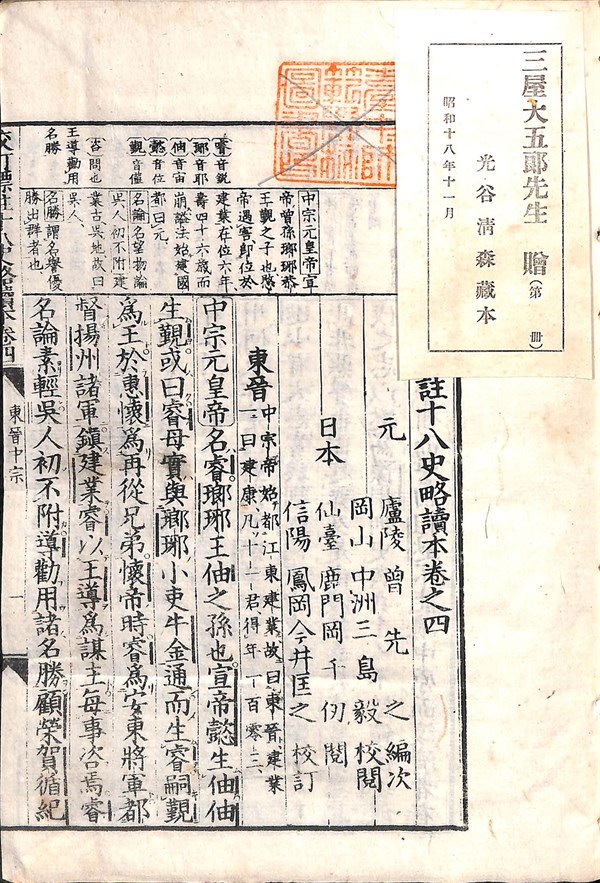 三屋大五郎先生 贈(第 冊)
光谷清森藏本
昭和十八年十一月
註十八史略讀本卷之四
元 廬陵 曾先之 編次
岡山 中洲三島毅 校閲
日本 仙臺 鹿門岡千仞 閲
信陽 鳳岡今井匡之 校訂
東晉
中宗帝始都江東建業故曰東晉建業
一曰建康凡十一君得年一百零三
中宗元皇帝名睿瑯琊王伷之孫也宣帝懿生伷伷
生覲或曰睿母實與瑯琊小吏牛金通而生睿嗣覲
爲王於惠懷爲再從兄弟懷帝時睿爲安東將軍都
督揚州諸軍鎮建業睿以王導爲謀主每事咨焉睿
名論素輕吳人初不附導勸用諸名勝顧榮賀循紀
中宗元皇帝宣
帝曾孫瑯琊恭
王覲之子也愍
帝遇害卽位於
建業在位六年
壽四十六歲而
崩謚法始建國
都曰元
名論名望物論
吳人初不附建
業古吳地故曰
吳人
名勝謂名譽優
勝出群者也
睿音銳
瑯音耶
伷音宙
懿音位
覲音僅
咨問也
王導勸用
名勝
東晉中宗
一